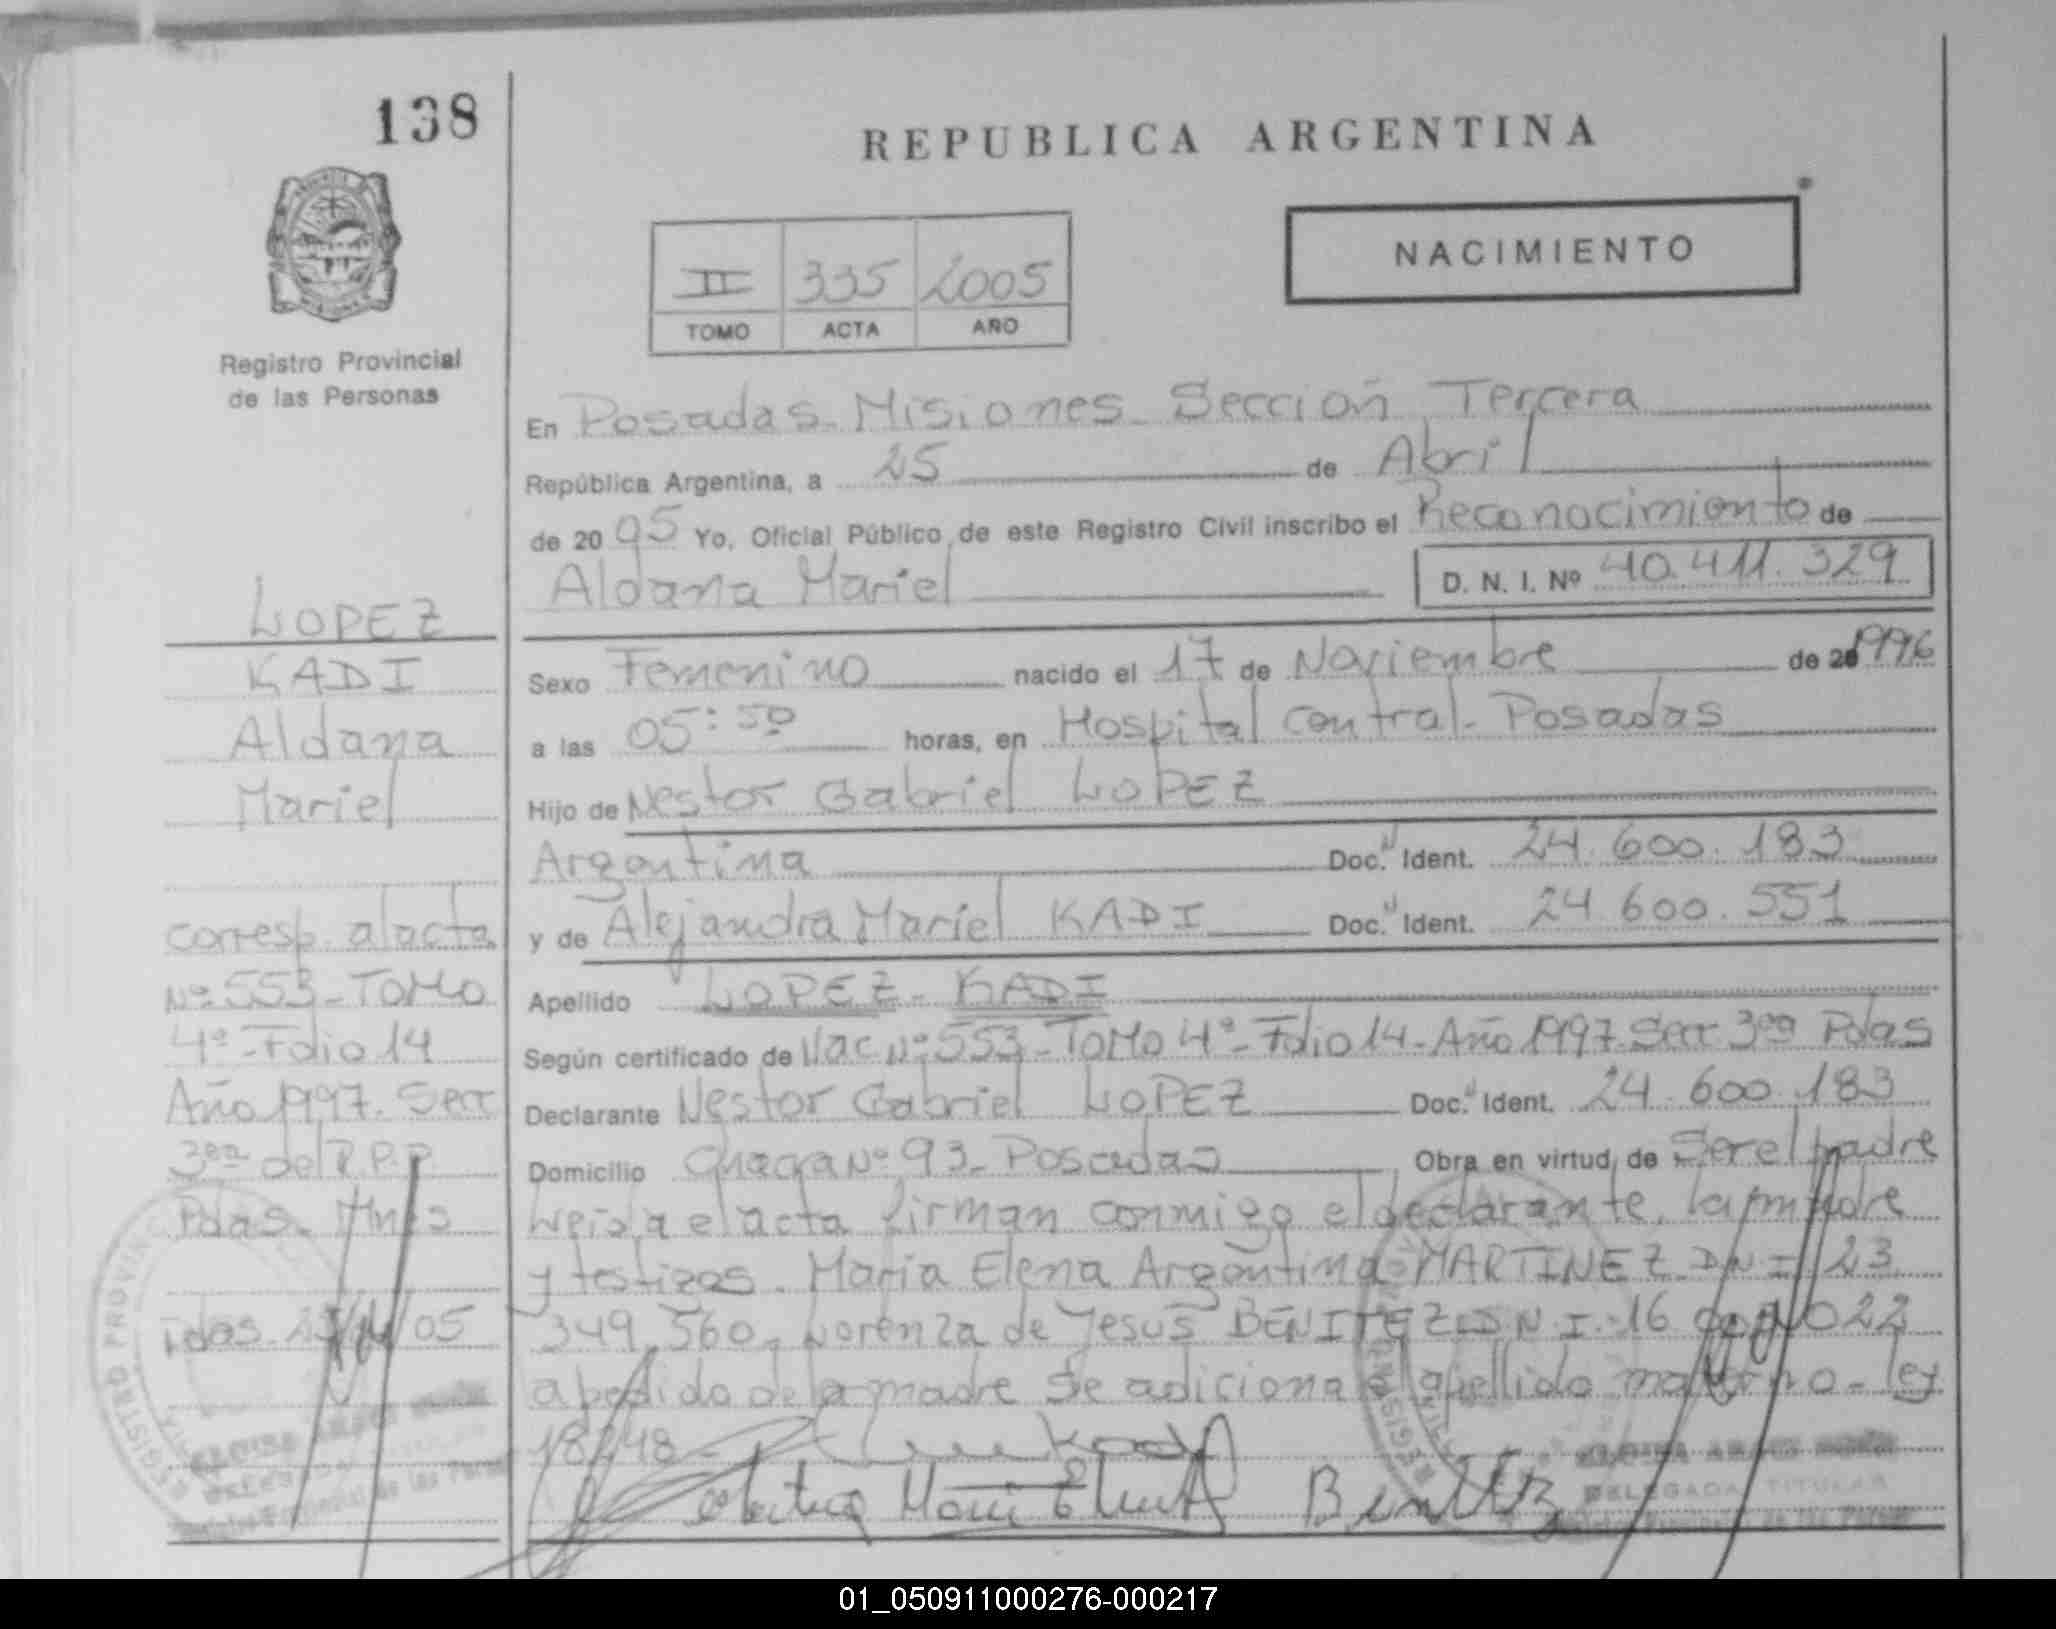 138
REPUBLICA ARGENTINA
NACIMIENTO
II 335 2005
TOMO ACTA AÑO
Registro Provincial
de las Personas
En Posadas - Misiones - Sección Tercera
República Argentina, a 25 de Abril
de 2005 Yo, Oficial Público de este Registro Civil inscribo el Reconocimiento de
Aldana Mariel D. N. I. Nº 40.411.329
LOPEZ
KADI
Aldana
Mariel
Sexo Femenino nacido el 17 de Noviembre de 20 1996
a las 05:50 horas, en Hospital Central - Posadas
Hijo de Nestor Gabriel LOPEZ
Argentina Doc. Ident. 24.600.183
y de Alejandra Mariel KADI Doc. Ident. 24.600.551
Apellido LOPEZ - KADI
Según certificado de Nac Nº 553 - TOMO 4º - Folio 14 - Año 1997 Secc 3era Pdas
Declarante Nestor Gabriel LOPEZ Doc. Ident. 24.600.183
Domicilio Chacra Nº 93 - Posadas Obra en virtud de Ser el padre
Leida el acta firman conmigo el declarante, la madre
y testigos. Maria Elena Argentina MARTINEZ D N I 23
349.560 - Lorenza de Jesus BENITEZ D N I 16 022
a pedido de la madre se adiciona el apellido materno - ley
18248 -
corresp. al acta
Nº 553 - TOMO
4º - Folio 14
Año 1997. Secc
3era del R.P.P.
Pdas - Mnes
Pdas 05
REGISTRO PROVINCIAL
DELEGADA TITULAR
Benitez
01_050911000276-000217